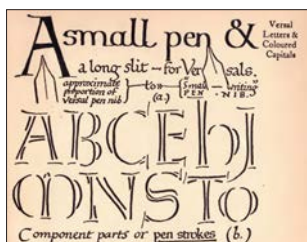 A small pen &
Versal
Letters &
Coloured
Capitals
a long slit — for Versals.
approximate
proportion of
versal pen nib
— to —
Small pen
writing
NIB.
(a.)
ABCEh
MNSTO
Component parts or pen strokes (b.)